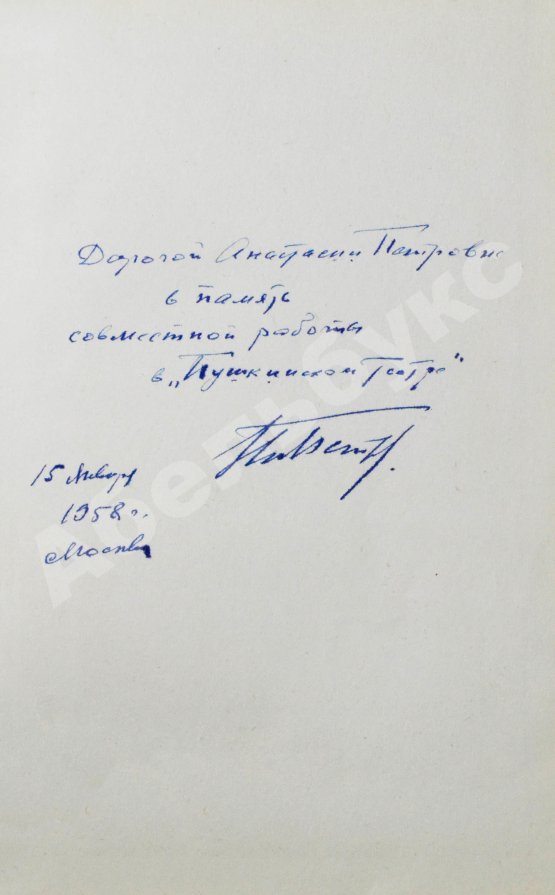 Дорогой Анастасии Петровне
в память
совместной работы
в „Пушкинском Театре"
15 января
1958 г.
Москва
Арельбукс